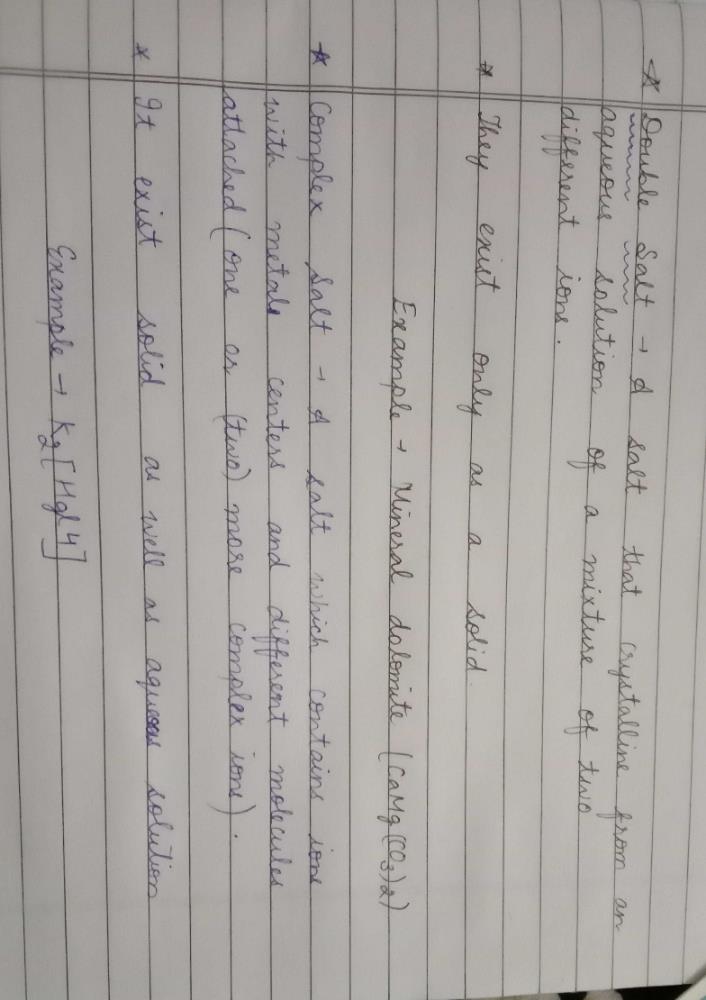 * Double Salt → A salt that crystalline from an
aqueous solution of a mixture of two
different ions.
* They exist only as a solid.
Example → Mineral dolomite (CaMg(CO3)2)
* Complex Salt → A salt which contains ions
with metals centers and different molecules
attached (one or (two) more complex ions).
* It exist solid as well as aqueous solution
Example → K2[HgI4]